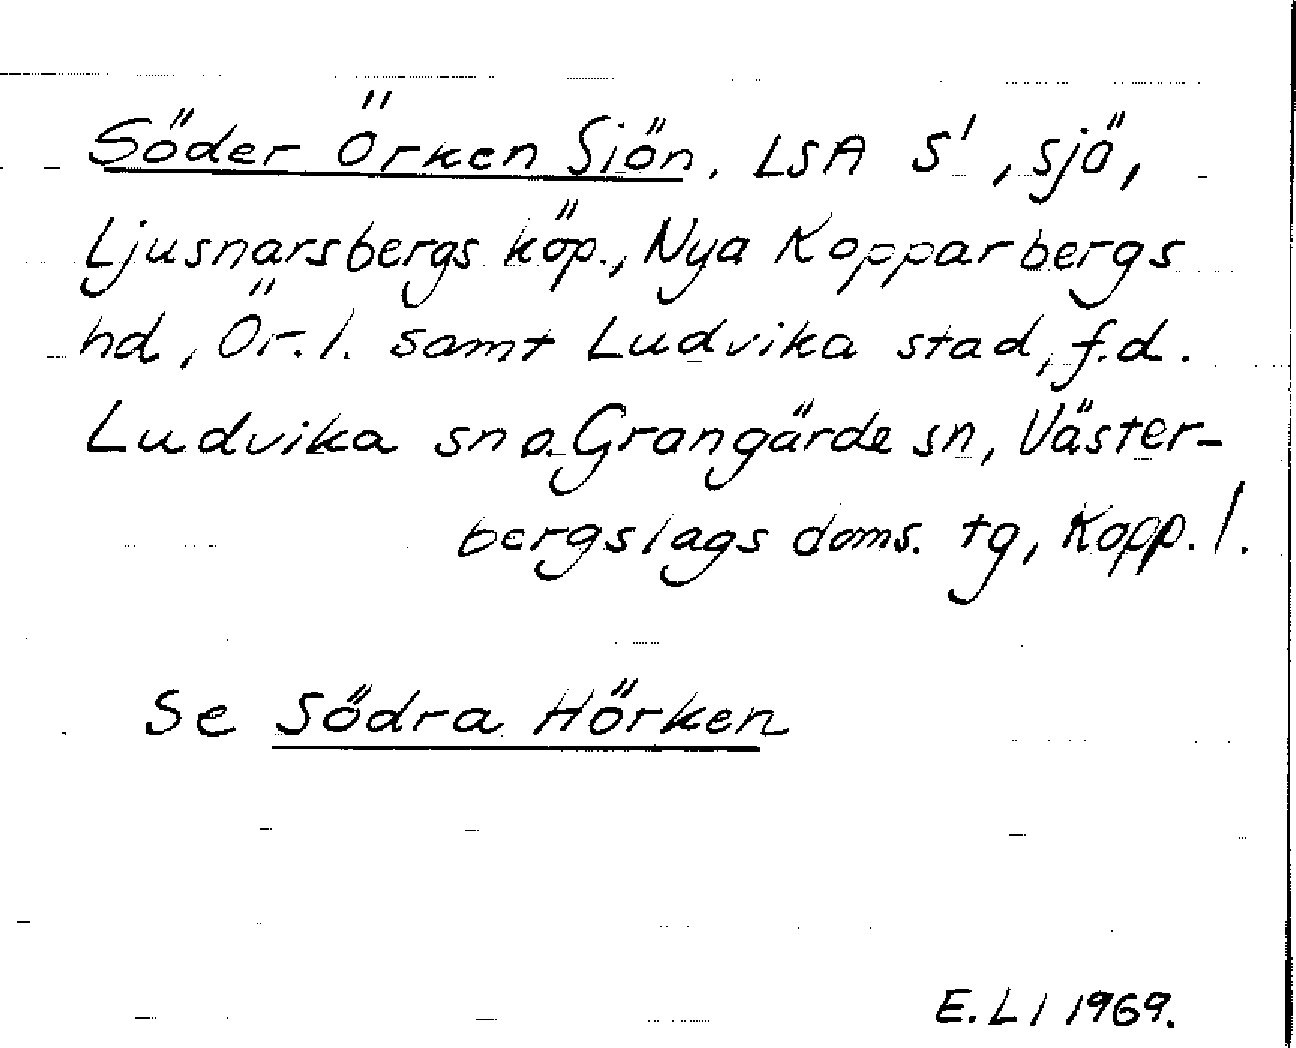 Söder Örken Siön. LSA S¹, sjö,
Ljusnarsbergs köp., Nya Kopparbergs
hd, Ör. l. samt Ludvika stad, f.d.
Ludvika sn o. Grangärde sn, Väster-
bergslags doms. tg, Kopp. l.
Se Södra Hörken
E. L I 1969.